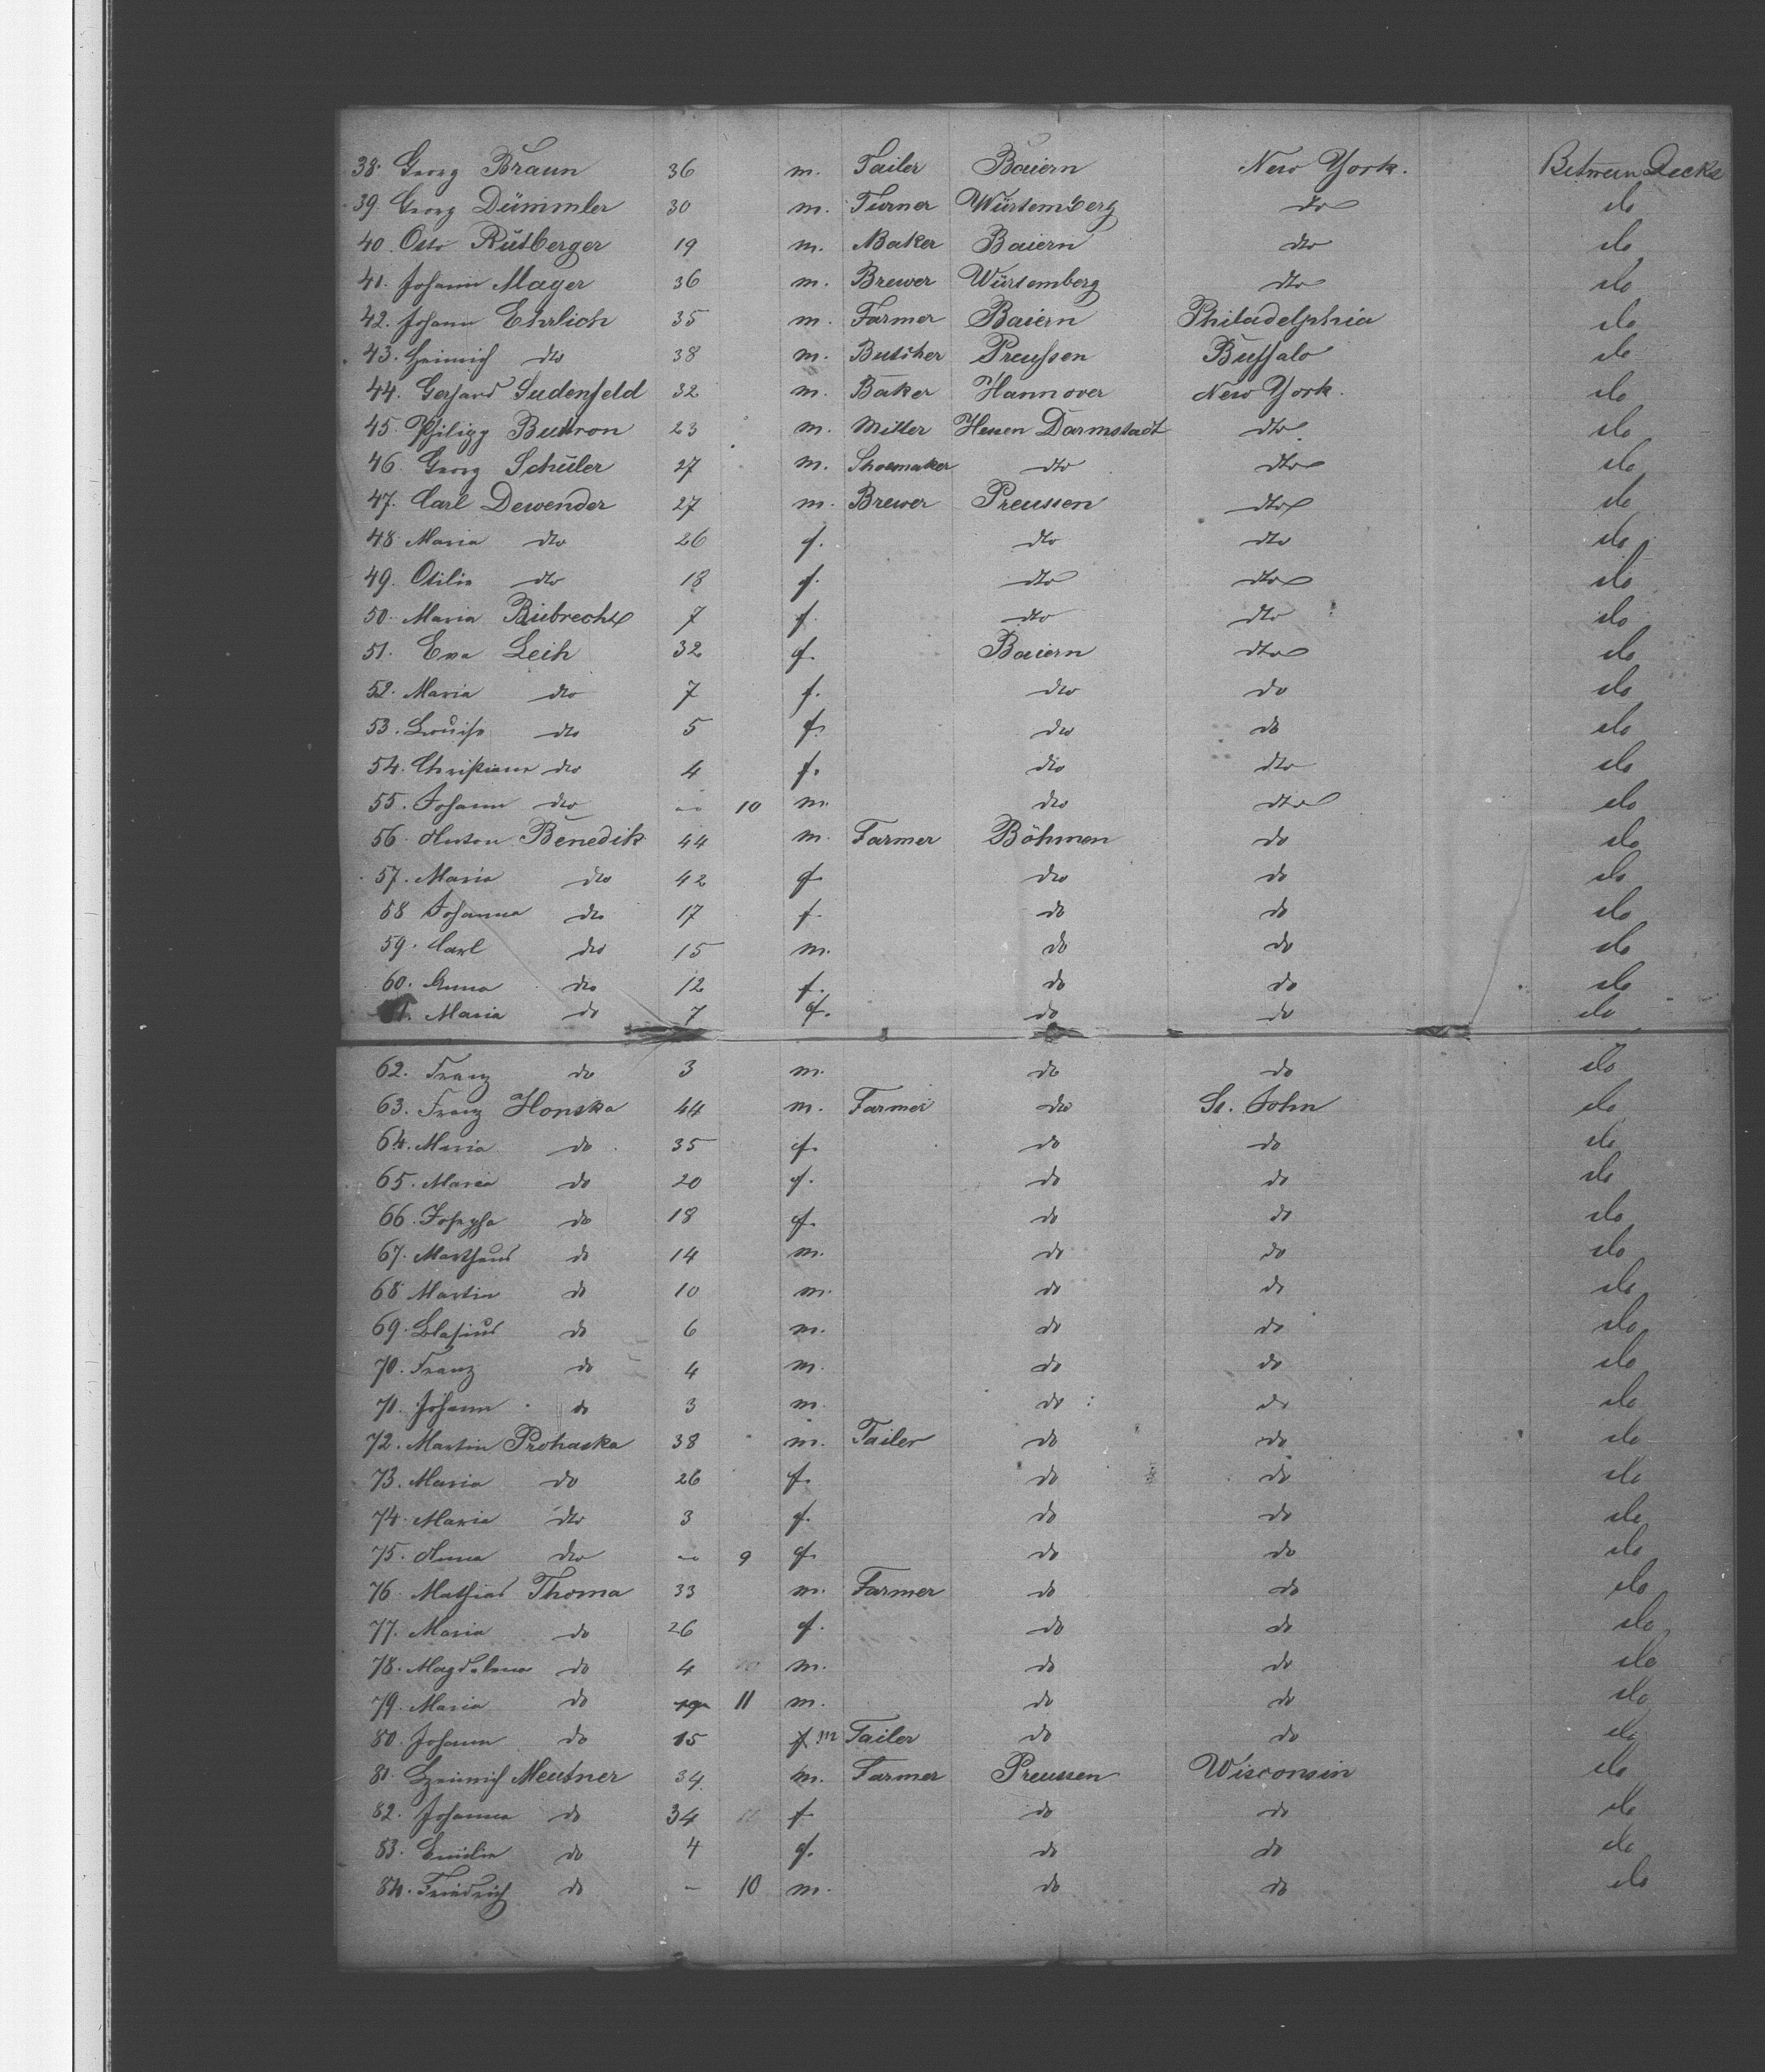 38. Georg Braun 36 m. Tailer Baiern New York. Between Decks
39. Georg Dümmler 30 m. Turner Würtemberg dto do
40. Otto Rütberger 19 m. Baker Baiern dto do
41. Johann Mayer 36 m. Brewer Würtemberg dto do
42. Johann Ehrlich 35 m. Farmer Baiern Philadelphia do
43. Heinrich dto 38 m. Butcher Preußen Buffalo do
44. Gerhard Sudenfeld 32 m. Baker Hannover New York. do
45. Philipp 23 m. Miller Hessen Darmstadt dto do
46. Georg Schüler 27 m. Shoemaker dto dto do
47. Carl Dewender 27 m. Brewer Preussen dto do
48. Maria dto 26 f. dto dto do
49. Otilie dto 18 f. dto dto do
50. Maria 7 f. dto dto do
51. Eva Leih 32 f. Baiern dto do
52. Maria dto 7 f. dto do do
53. Louise dto 5 f. dto do do
54. Christiane dto 4 f. dto dto do
55. Johann dto 10 m. dto dto do
56. Anton Benedik 44 m. Farmer Böhmen do do
57. Maria dto 42 f. dto do do
58 Johanna dto 17 f. do do do
59. Carl dto 15 m. do do do
60. Anna dto 12 f. do do do
61. Maria do 7 f. do do do
62. Franz do 3 m. do do do
63. Franz Honska 44 m. Farmer dto St. John do
64. Maria do 35 f. do do do
65. Maria do 20 f. do do do
66. Josepha do 18 f. do do do
67. Matthaus do 14 m. do do do
68 Martin do 10 m. do do do
69. Blasius do 6 m. do do do
70. Franz do 4 m. do do do
71. Johann do 3 m. do do do
72. Martin Prohaska 38 m. Tailer do do do
73. Maria do 26 f. do do do
74. Maria dto 3 f. do do do
75. Anna dto 9 f. do do do
76. Mathias Thoma 33 m. Farmer do do do
77. Maria do 26 f. do do do
78. Magdalena do 4 m. do do do
79. Maria do 11 m. do do do
80. Johann do 15 f m Tailer do do do
81. Heinrich Meutner 34 m. Farmer Preussen Wisconsin do
82. Johanna do 34 f do do do
83. Emilie do 4 f. do do do
84. Friedrich do - 10 m. do do do